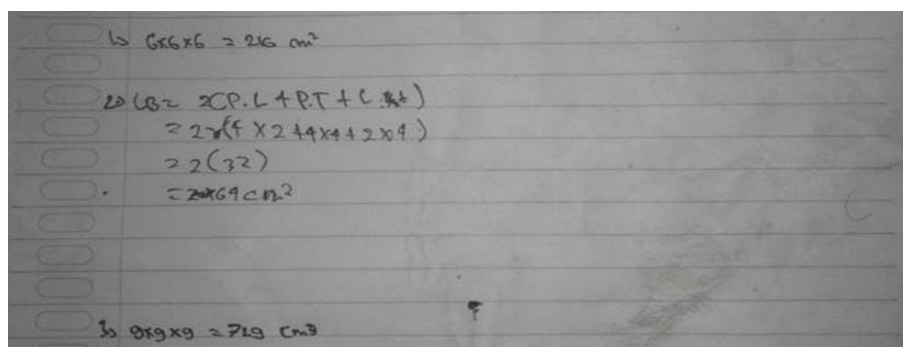 1) 6x6x6 = 216 cm²
2) LB = 2(P.L + P.T + L.t)
= 2x(4 x 2 + 4x4 + 2x4)
= 2(32)
= 64 cm²
3) 9x9x9 = 729 cm³